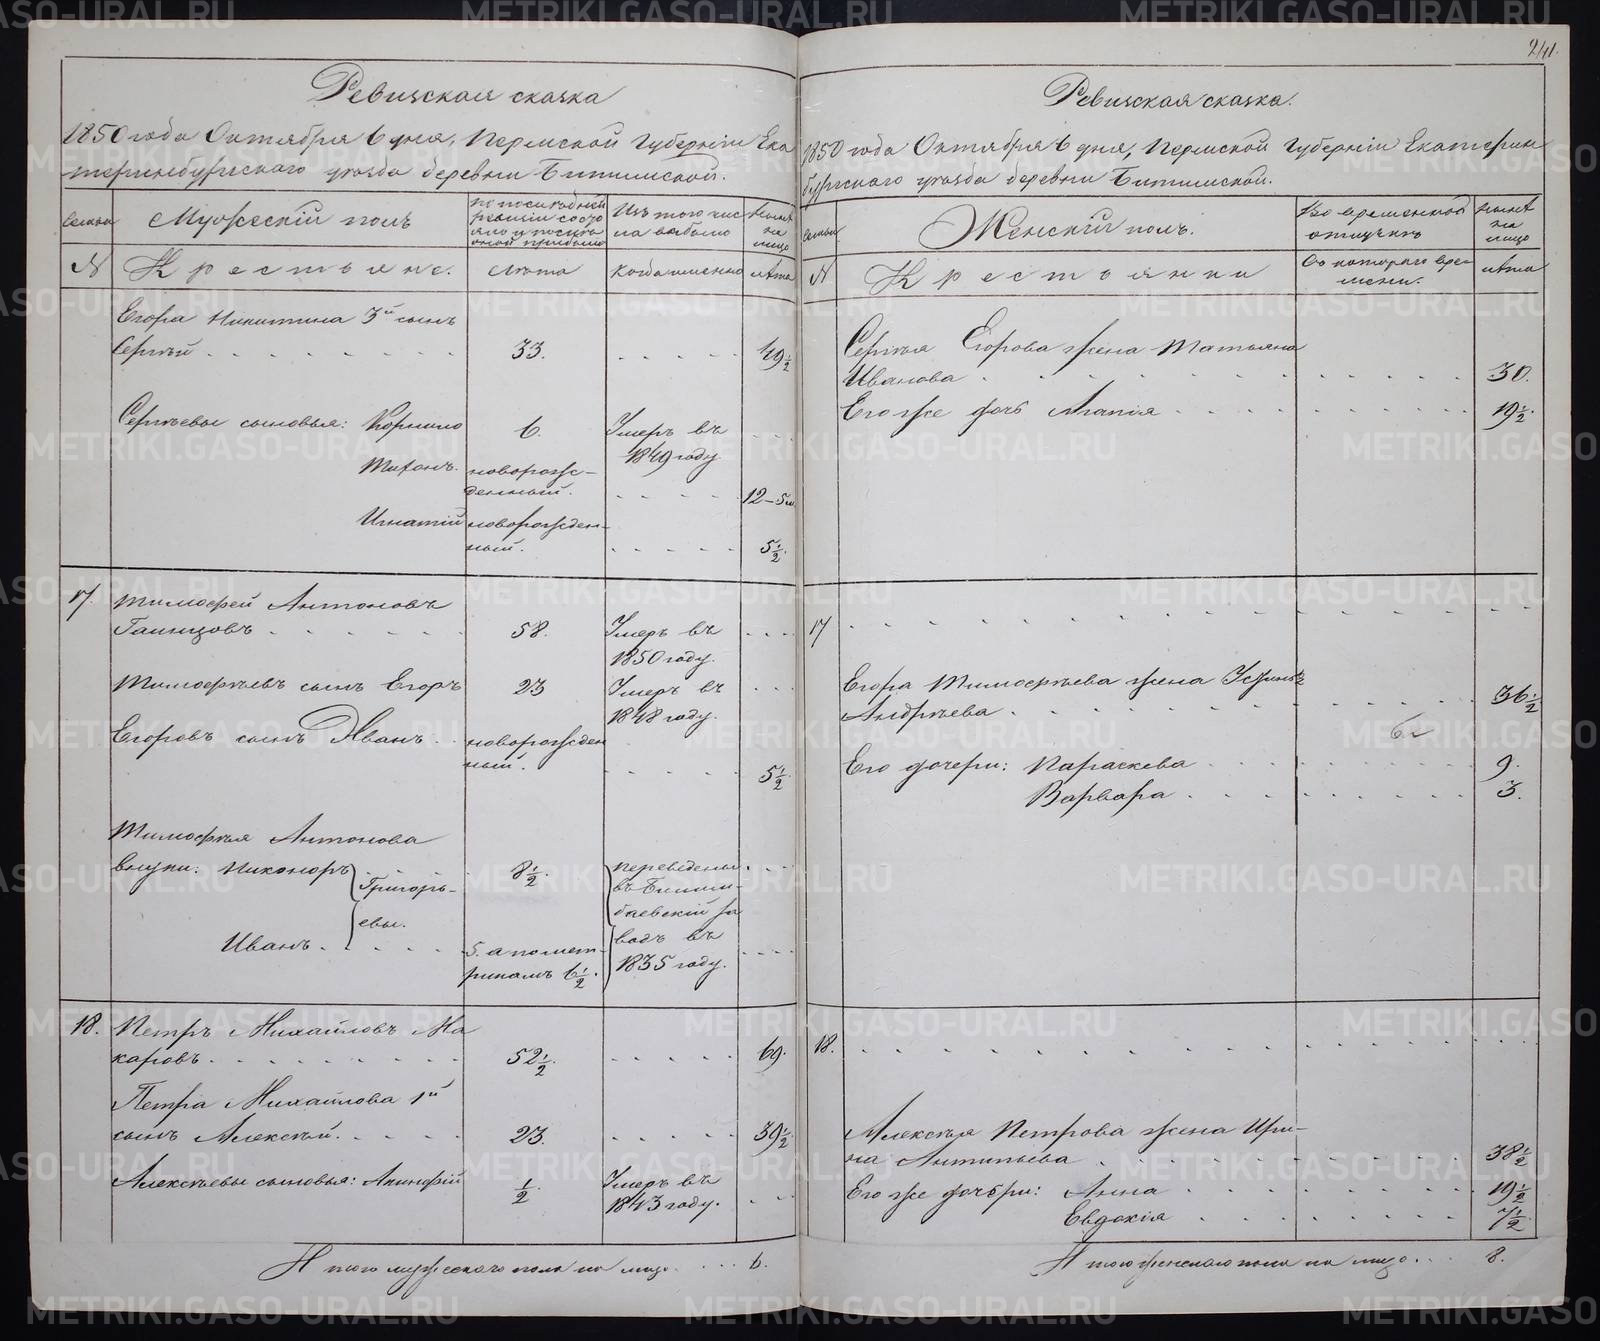 Ревизская сказка
1850 года Октября 6 дня, Пермской Губерніи Ека
теринбургскаго уезда деревни Битимской.
семьи
Мужескій полъ
По последней
ревизіи состо
яло и после
оной прибыло
Изъ того чис
ла выбыло
Ныне
на
лицо
№
Крестьяне.
Лета
Когда именно
Лета
Егора Никитина 3й сынъ
Сергей . . . . . . . . 33. . . . . . 49½
Сергеевы сыновья: Корнило 6. Умеръ въ . . .
1849 году.
Титъ. новорож-
денный. . . . . 12-5м
Игнатій новорожден-
ный. . . . . . 5½.
17. Тимофей Антоновъ
Галицовъ . . . . . . 58. Умеръ въ . . .
1850 году.
Тимофеевъ сынъ Егоръ 23 Умеръ въ . . .
1848 году.
Егоровъ сынъ Иванъ . . новорожден
ный. . . . . . 5½
Тимофея Антонова
внуки: Никоноръ 8½. переведены . . .
Григорь-
въ Билим-
баевскій за
евы.
Иванъ . . . . . 5. а по мет- водъ въ . . . .
рикамъ 6½. 1835 году.
18. Петръ Михайловъ Ма
каровъ . . . . . . . . . 52½. . . . . . 69.
Петра Михайлова 1й
сынъ Алексей. . . . . 23. . . . . . 39½
Алексеевы сыновья: Акинфій ½. Умеръ въ
1843 году. . . .
Итого мужескаго пола на лицо. . . . . 6.
241.
Ревизская сказка.
1850 года Октября 6 дня, Пермской Губерніи Екатерин
бургскаго уезда деревни Битимской.
семьи
Женскій полъ.
Во временной
отлучке
Ныне
на
лицо
№
Крестьянки
Съ котораго вре-
мени.
Лета
Сергея Егорова жена Татьяна
Иванова . . . . . . . . . . 30.
Его же дочь Агапія . . . . . . . . . 19½
17 . . . . . . . . . . . . . . .
Егора Тимофеева жена Устинья
Андреева . . . . . . . . . . 36½
Его дочери: Параскева . . . . . . . . 9.
Варвара . . . . . . . . 3.
18. . . . . . . . . . . . . . . . .
Алексея Петрова жена Ири-
на Антипьева . . . . . . . . . 38½
Его же дочери: Анна . . . . . . . . . 19½
Евдокія . . . . . . . . . 7½
Итого женскаго пола на лицо. . . . 8.
METRIKI.GASO-URAL.RU